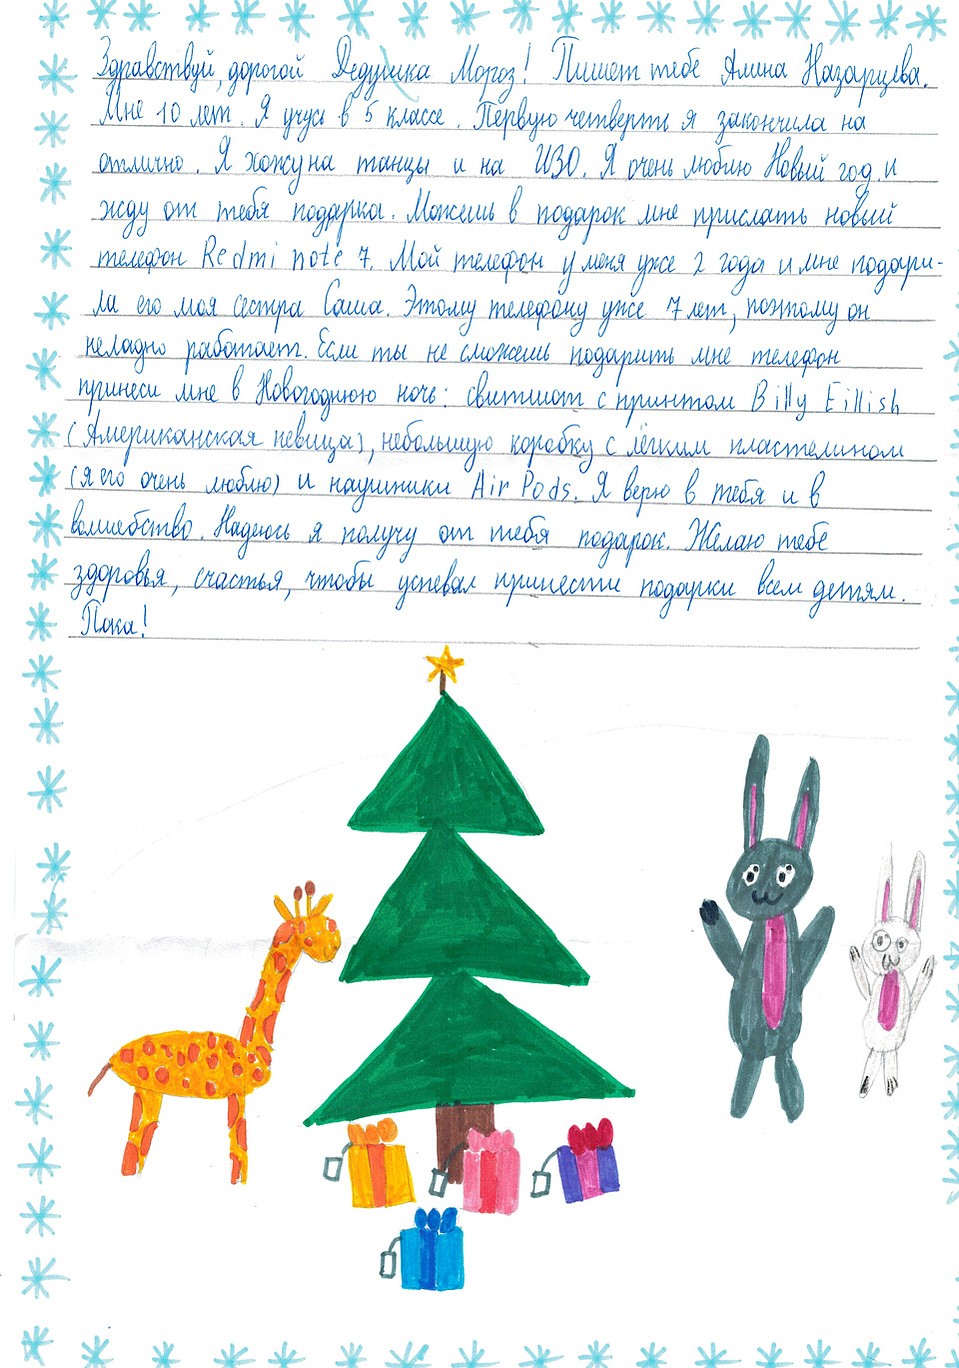 Здравствуй, дорогой Дедушка Мороз! Пишет тебе Амина Назарцева.
Мне 10 лет. Я учусь в 5 классе. Первую четверть я закончила на
отлично. Я хожу на танцы и на ИЗО. Я очень люблю Новый год и
жду от тебя подарка. Можешь в подарок мне прислать новый
телефон Redmi note 7. Мой телефон у меня уже 2 года и мне подари-
ла его моя сестра Саша. Этому телефону уже 7 лет, поэтому он
неладно работает. Если ты не сможешь подарить мне телефон
принеси мне в Новогоднюю ночь: свитшот с принтом Billy Eillish
(Американская певица), небольшую коробку с лёгким пластелином
(я его очень люблю) и наушники Air Pods. Я верю в тебя и в
волшебство. Надеюсь я получу от тебя подарок. Желаю тебе
здоровья, счастья, чтобы успевал принести подарки всем детям.
Пока!